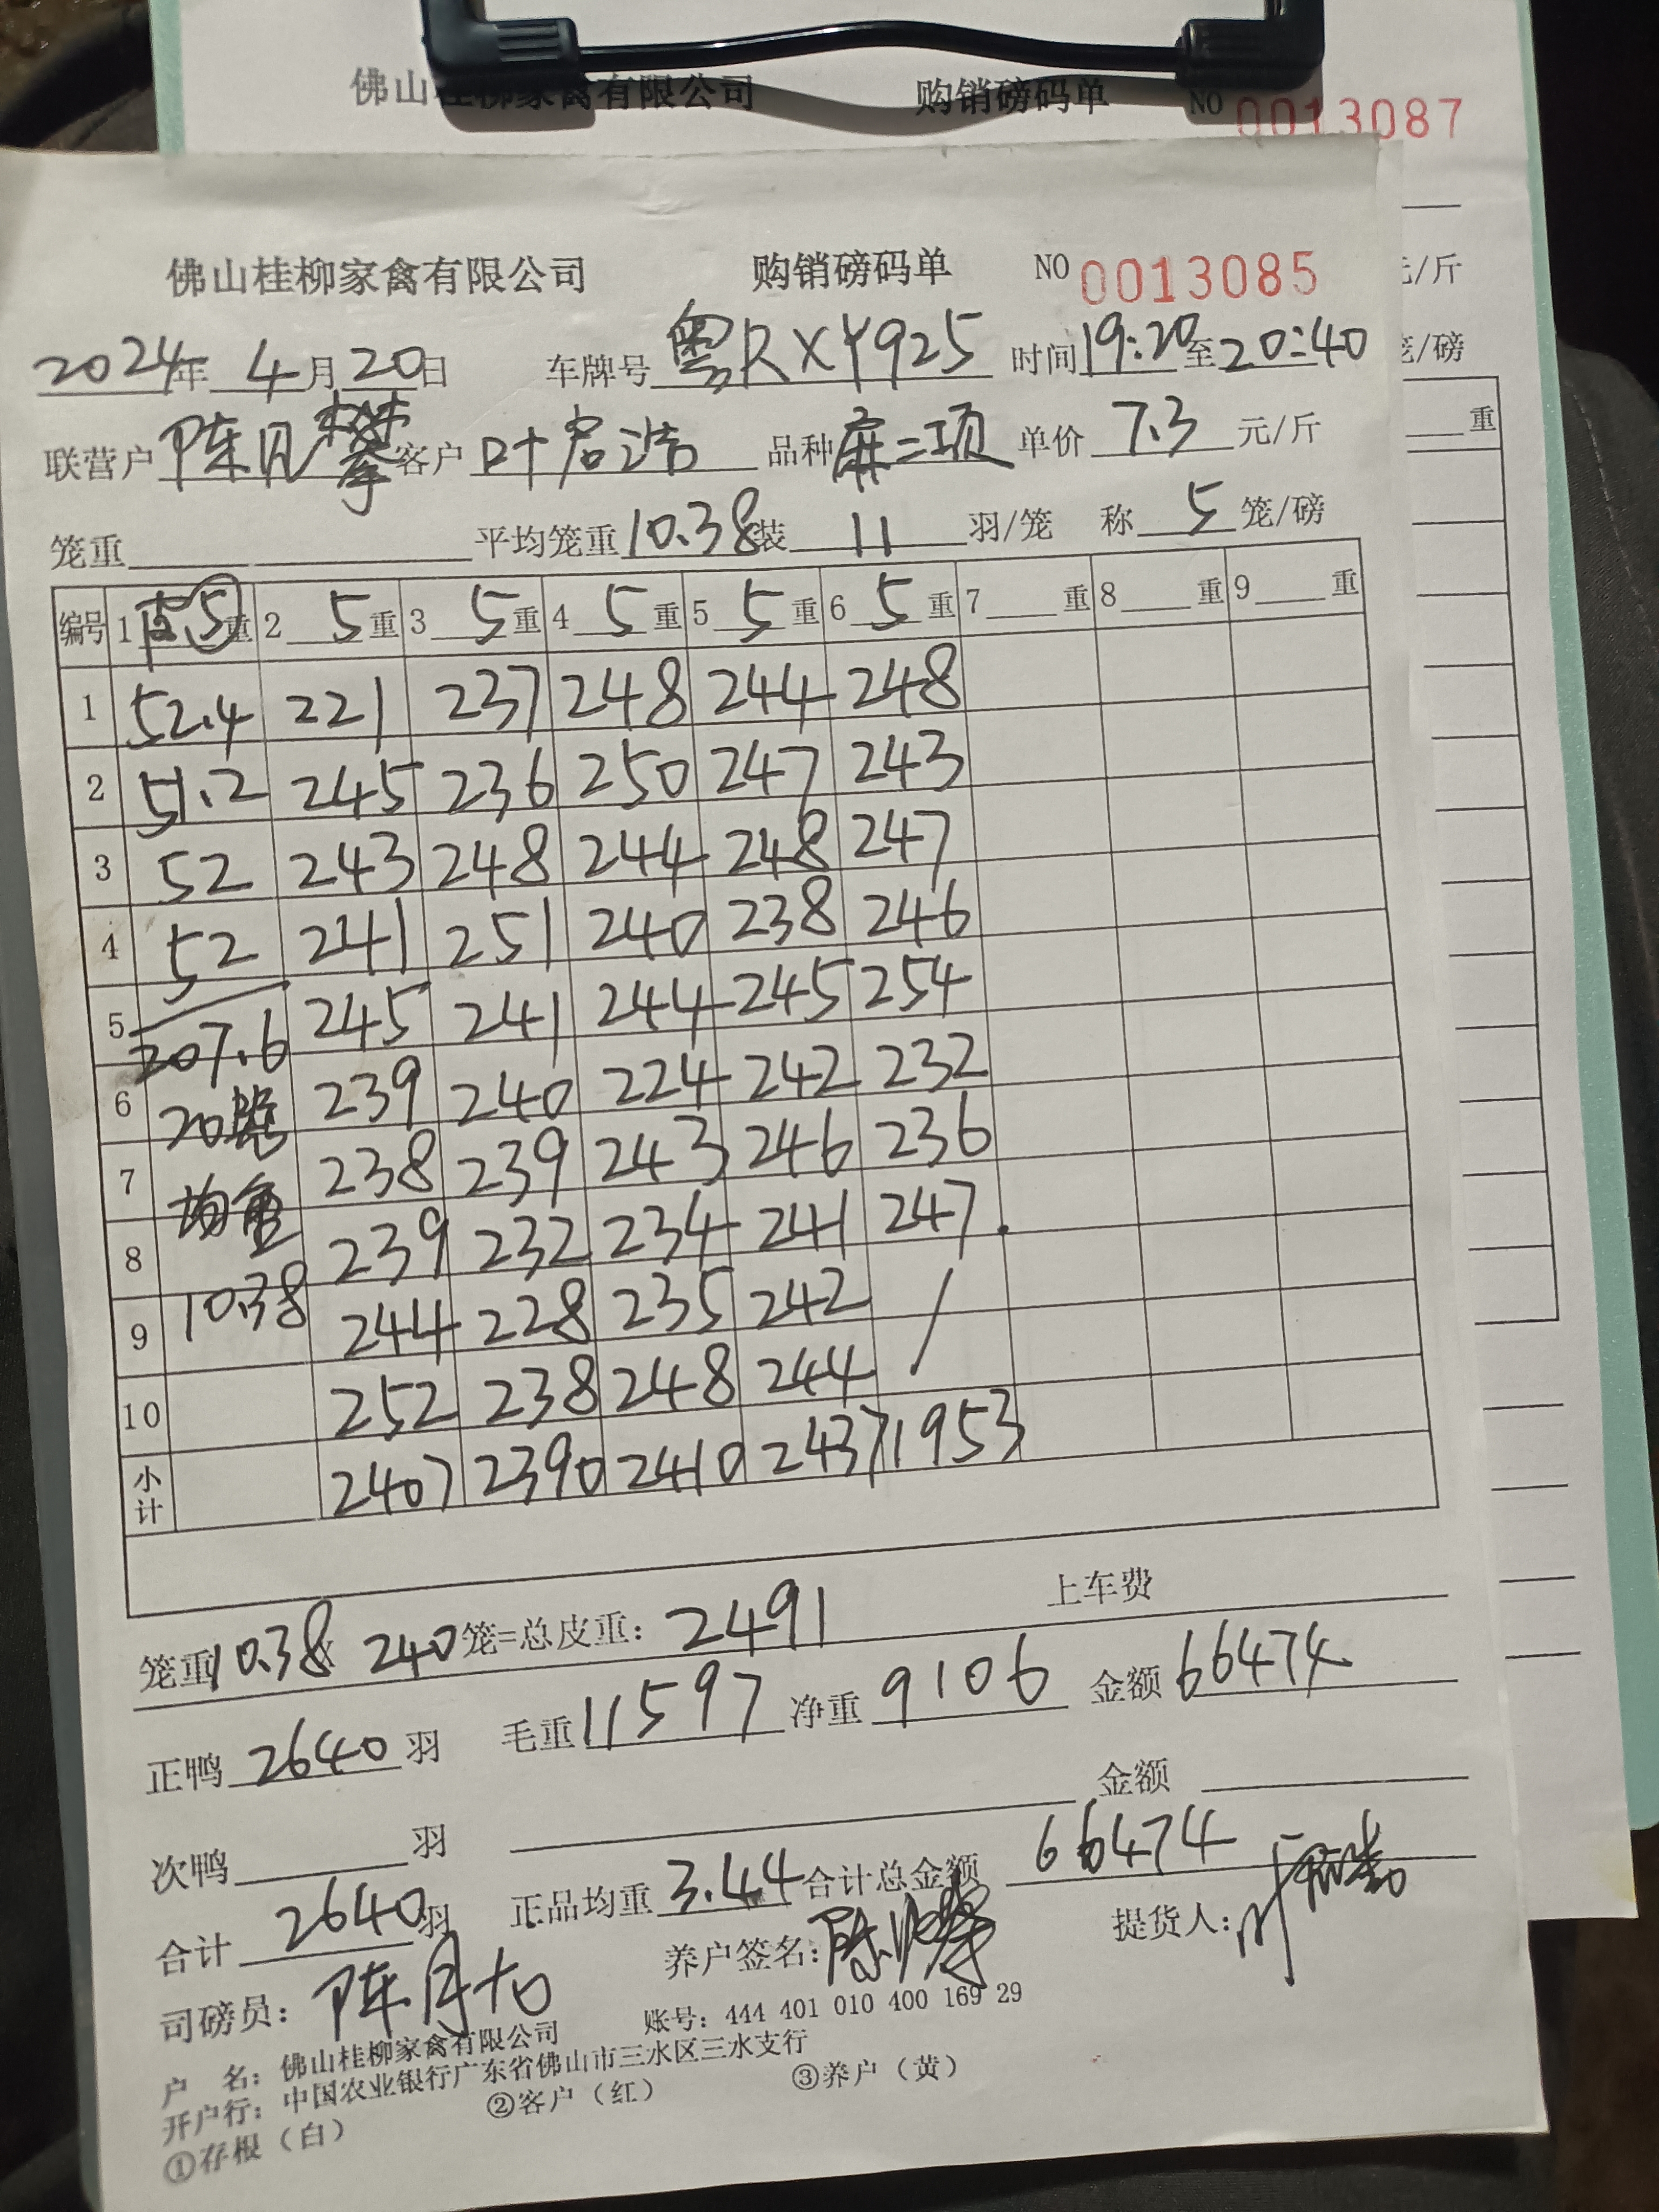 佛山桂柳家禽有限公司 购销磅码单 NO 0013087
元/斤
笼/磅
重
佛山桂柳家禽有限公司 购销磅码单 NO 0013085
2024年 4月20日 车牌号 粤RXY925 时间19:20至20:40
联营户 陈月攀 客户 叶启浩 品种 麻二项 单价 7.3 元/斤
笼重 平均笼重10.38装 11 羽/笼 称 5 笼/磅
编号 1 5重 2 5重 3 5重 4 5重 5 5重 6 5重 7 重 8 重 9 重
1 52.4 221 237 248 244 248
2 51.2 245 236 250 247 243
3 52 243 248 244 248 247
4 52 241 251 240 238 246
5 207.6 245 241 244 245 254
6 20笼 239 240 224 242 232
7 均重 238 239 243 246 236
8 239 232 234 241 247.
9 10.38 244 228 235 242 /
10 252 238 248 244
小计 2407 2390 2410 2437 1953
上车费
笼重10.38x 240笼=总皮重: 2491
正鸭 2640 羽 毛重11597 净重 9106 金额66474
次鸭 羽 金额
合计 2640羽 正品均重 3.44 合计总金额 66474
司磅员: 陈月 养户签名: 陈月攀 提货人: 叶启浩
户 名: 佛山桂柳家禽有限公司 账号: 444 401 010 400 169 29
开户行: 中国农业银行广东省佛山市三水区三水支行
①存根（白） ②客户（红） ③养户（黄）